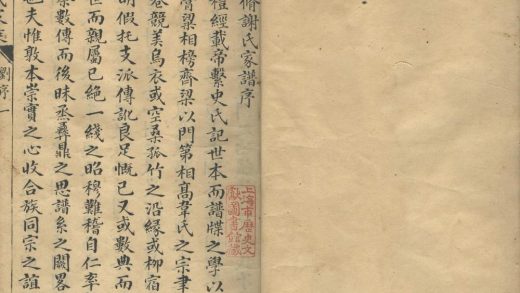 脩謝氏家譜序
禮經載帝繫史氏記世本而譜牒之學以
梁相榜齊梁以門第相高韋氏之宗聿
卷競美烏衣或空桑孤竹之沿緣或柳宿
明假托支派傳訛良足慨已又或數典而
世而親屬已絕一綫之昭穆難稽自仁率
數傳而後昧烝彝鼎之思譜系之闕畧
也夫惟敦本崇實之心收合族同宗之誼
劉序 一
上海市歷史文
獻圖書館藏